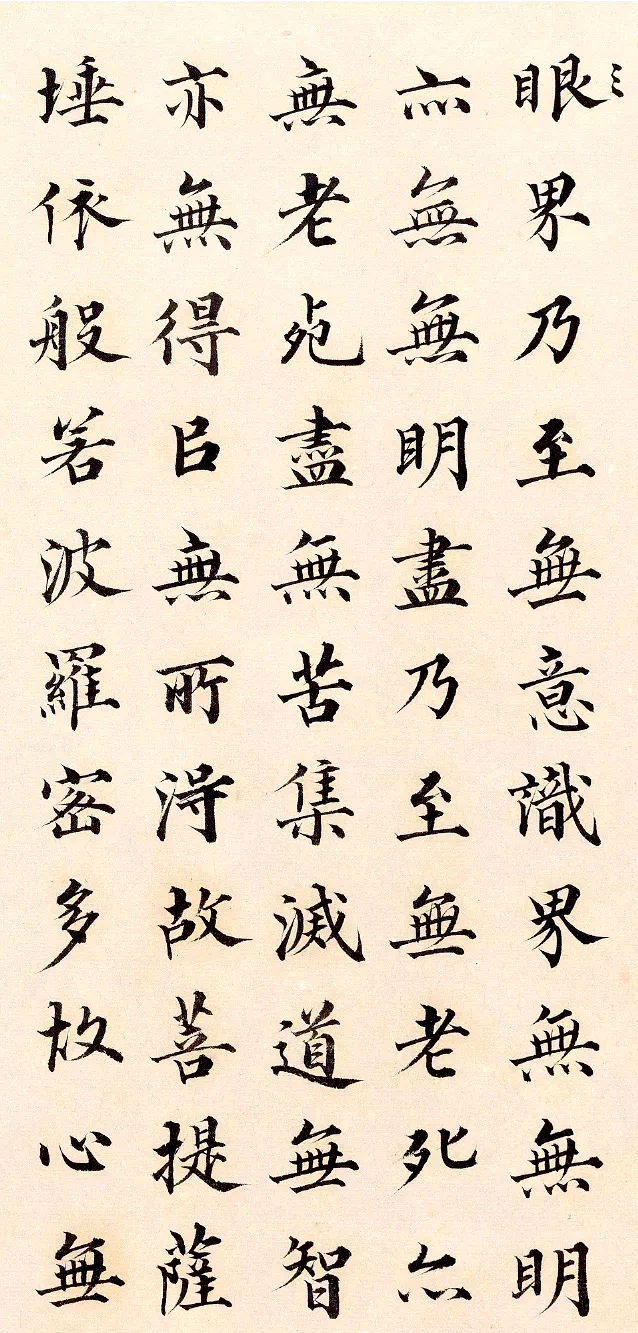 眼界乃至無意識界無無明
亦無無明盡乃至無老死亦
無老死盡無苦集滅道無智
亦無得㠯無所得故菩提薩
埵依般若波羅密多故心無